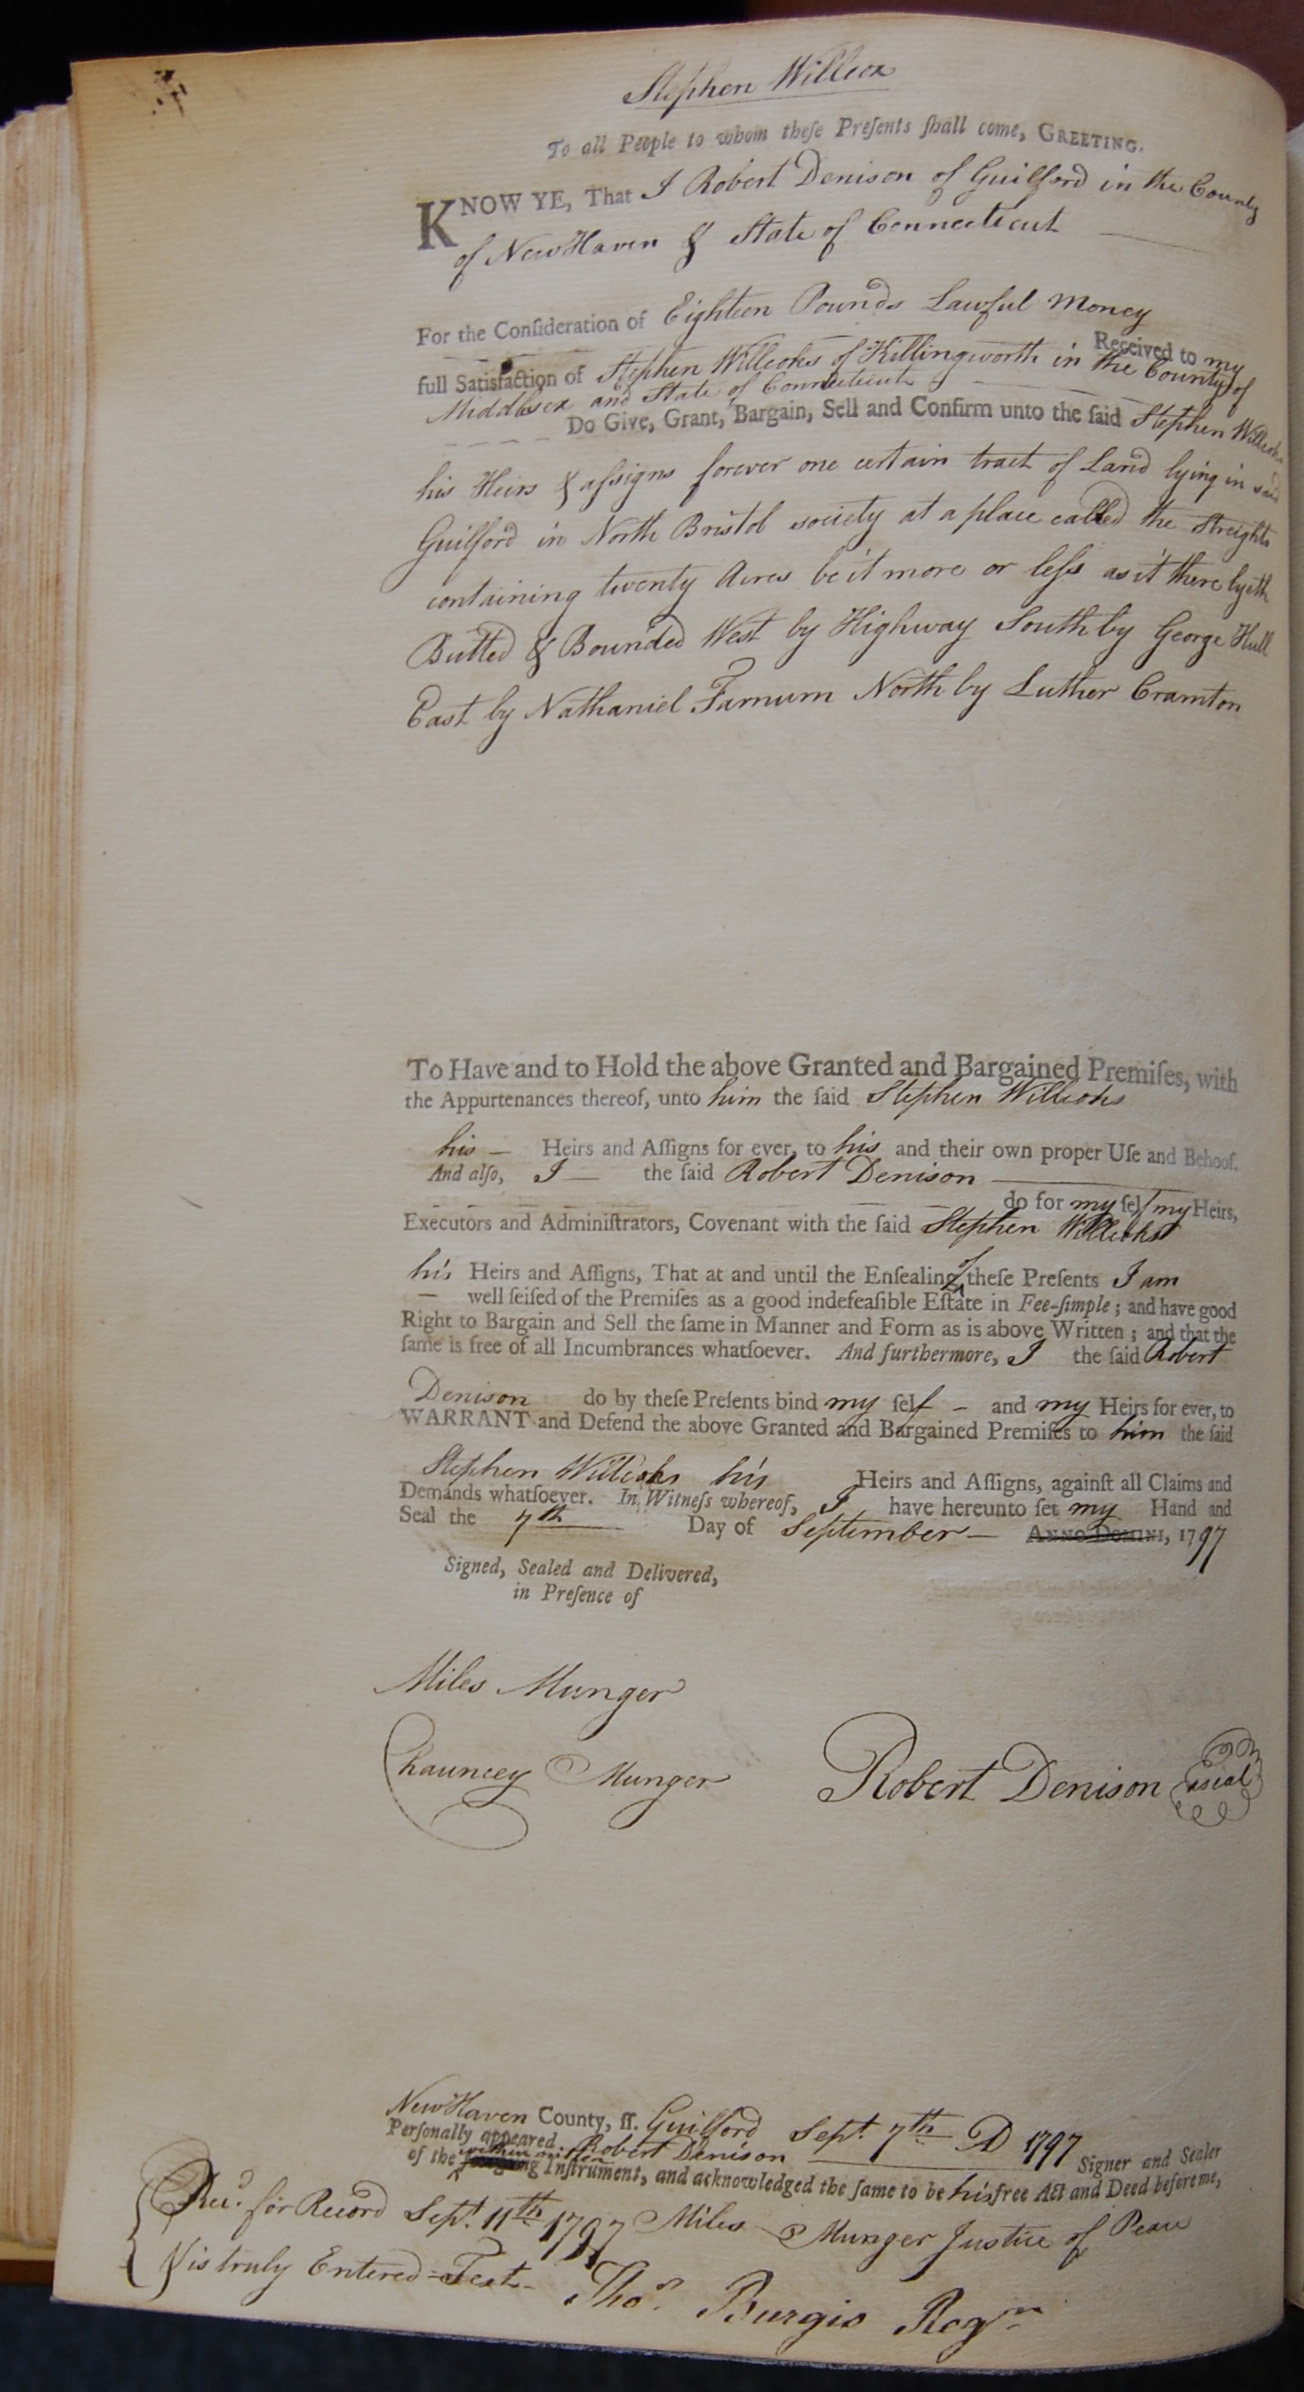 Stephen Willcox
To all People to whom theſe Preſents ſhall come, GREETING.
KNOW YE, That I Robert Denison of Guilford in the County
of New Haven & State of Connecticut
For the Conſideration of Eighteen Pounds Lawful Money
Received to my
full Satisfaction of Stephen Willcoks of Killingworth in the County of
Middlesex and State of Connecticut
Do Give, Grant, Bargain, Sell and Confirm unto the ſaid Stephen Willcoks
his Heirs & aſsigns forever one certain tract of Land lying in said
Guilford in North Bristol society at a place called the Streights
containing twenty Acres be it more or leſs as it there lyeth
Butted & Bounded West by Highway South by George Hull
East by Nathaniel Farnum North by Luther Cramton
To Have and to Hold the above Granted and Bargained Premiſes, with
the Appurtenances thereof, unto him the ſaid Stephen Willcoks
his Heirs and Aſſigns for ever, to his and their own proper Uſe and Behoof.
And alſo, I the ſaid Robert Denison
do for my ſelf my Heirs,
Executors and Adminiſtrators, Covenant with the ſaid Stephen Willcoks
his Heirs and Aſſigns, That at and until the Enſealing of theſe Preſents I am
well ſeiſed of the Premiſes as a good indefeaſible Eſtate in Fee-ſimple; and have good
Right to Bargain and Sell the ſame in Manner and Form as is above Written; and that the
ſame is free of all Incumbrances whatſoever. And furthermore, I the ſaid Robert
Denison do by theſe Preſents bind my ſelf - and my Heirs for ever, to
WARRANT and Defend the above Granted and Bargained Premiſes to him the ſaid
Stephen Willcoks his Heirs and Aſſigns, againſt all Claims and
Demands whatſoever. In Witneſs whereof, I have hereunto ſet my Hand and
Seal the 7th Day of September - ANNO DOMINI, 1797
Signed, Sealed and Delivered,
in Preſence of
Miles Munger
Chauncey Munger Robert Denison a seal
New Haven County, ſſ. Guilford Sept. 7th D 1797
Perſonally appeared Robert Denison Signer and Sealer
within written
of the foregoing Inſtrument, and acknowledged the ſame to be his free Act and Deed before me,
Miles Munger Justice of Peace
Recd. for Record Sept. 11th 1797
& is truly Entered = Test - Thos. Burgis Regr